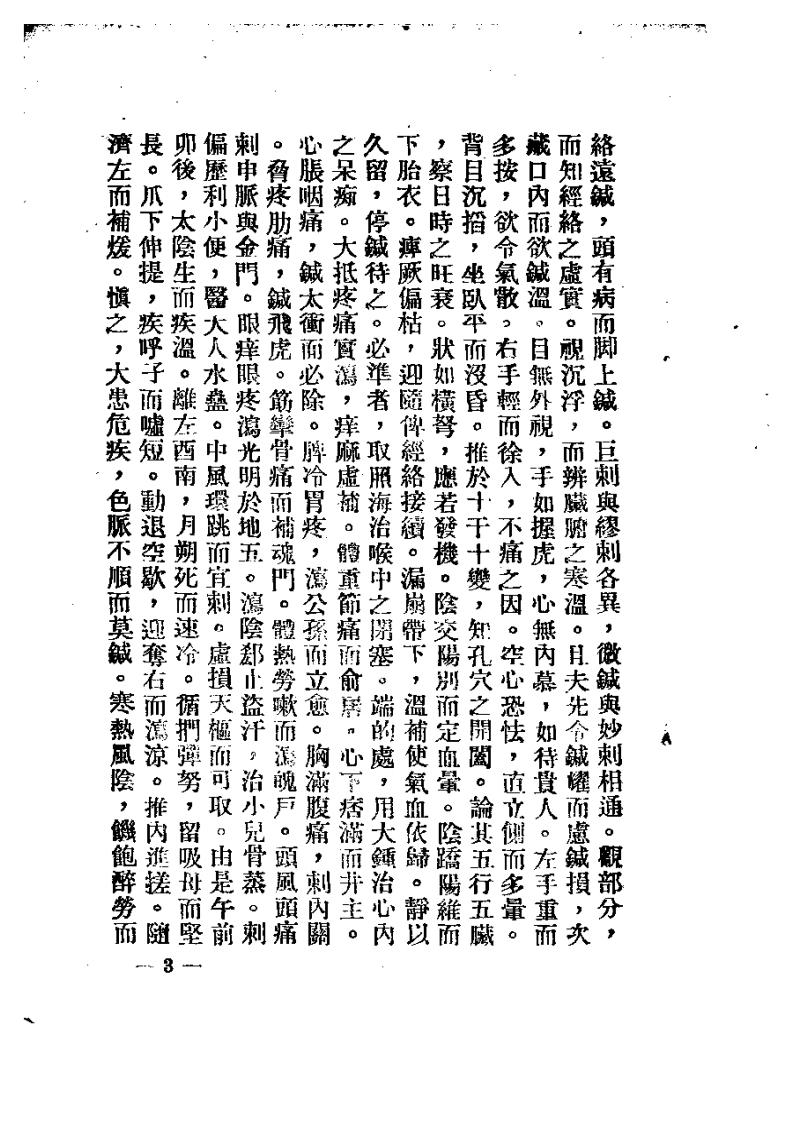 絡遠鍼，頭有病而脚上鍼。巨刺與繆刺各異，微鍼與妙刺相通。觀部分，
而知經絡之虛實。視沉浮，而辨臟腑之寒溫。且夫先令鍼耀而慮鍼損，次
藏口內而欲鍼溫。目無外視，手如握虎，心無內慕，如待貴人。左手重而
多按，欲令氣散。右手輕而徐入，不痛之因。空心恐怯，直立側而多暈。
背目沉搯，坐臥平而沒昏。推於十干十變，知孔穴之開闔。論其五行五臟
，察日時之旺衰。狀如橫弩，應若發機。陰交陽別而定血暈。陰蹻陽維而
下胎衣。痺厥偏枯，迎隨俾經絡接續。漏崩帶下，溫補使氣血依歸。靜以
久留，停鍼待之。必準者，取照海治喉中之閉塞。端的處，用大鍾治心內
之呆痴。大抵疼痛實瀉，痒麻虛補。體重節痛而俞居。心下痞滿而井主。
心脹咽痛，鍼太衝而必除。脾冷胃疼，瀉公孫而立愈。胸滿腹痛，刺內關
。脅疼肋痛，鍼飛虎。筋攣骨痛而補魂門。體熱勞嗽而瀉魄戶。頭風頭痛
刺申脈與金門。眼痒眼疼瀉光明於地五。瀉陰郄止盜汗，治小兒骨蒸。刺
偏歷利小便，醫大人水蠱。中風環跳而宜刺。虛損天樞而可取。由是午前
卯後，太陰生而疾溫。離左酉南，月朔死而速冷。循捫彈努，留吸母而堅
長。爪下伸提，疾呼子而噓短。動退空歇，迎奪右而瀉涼。推內進搓。隨
濟左而補煖。慎之，大患危疾，色脈不順而莫鍼。寒熱風陰，饑飽醉勞而
— 3 —